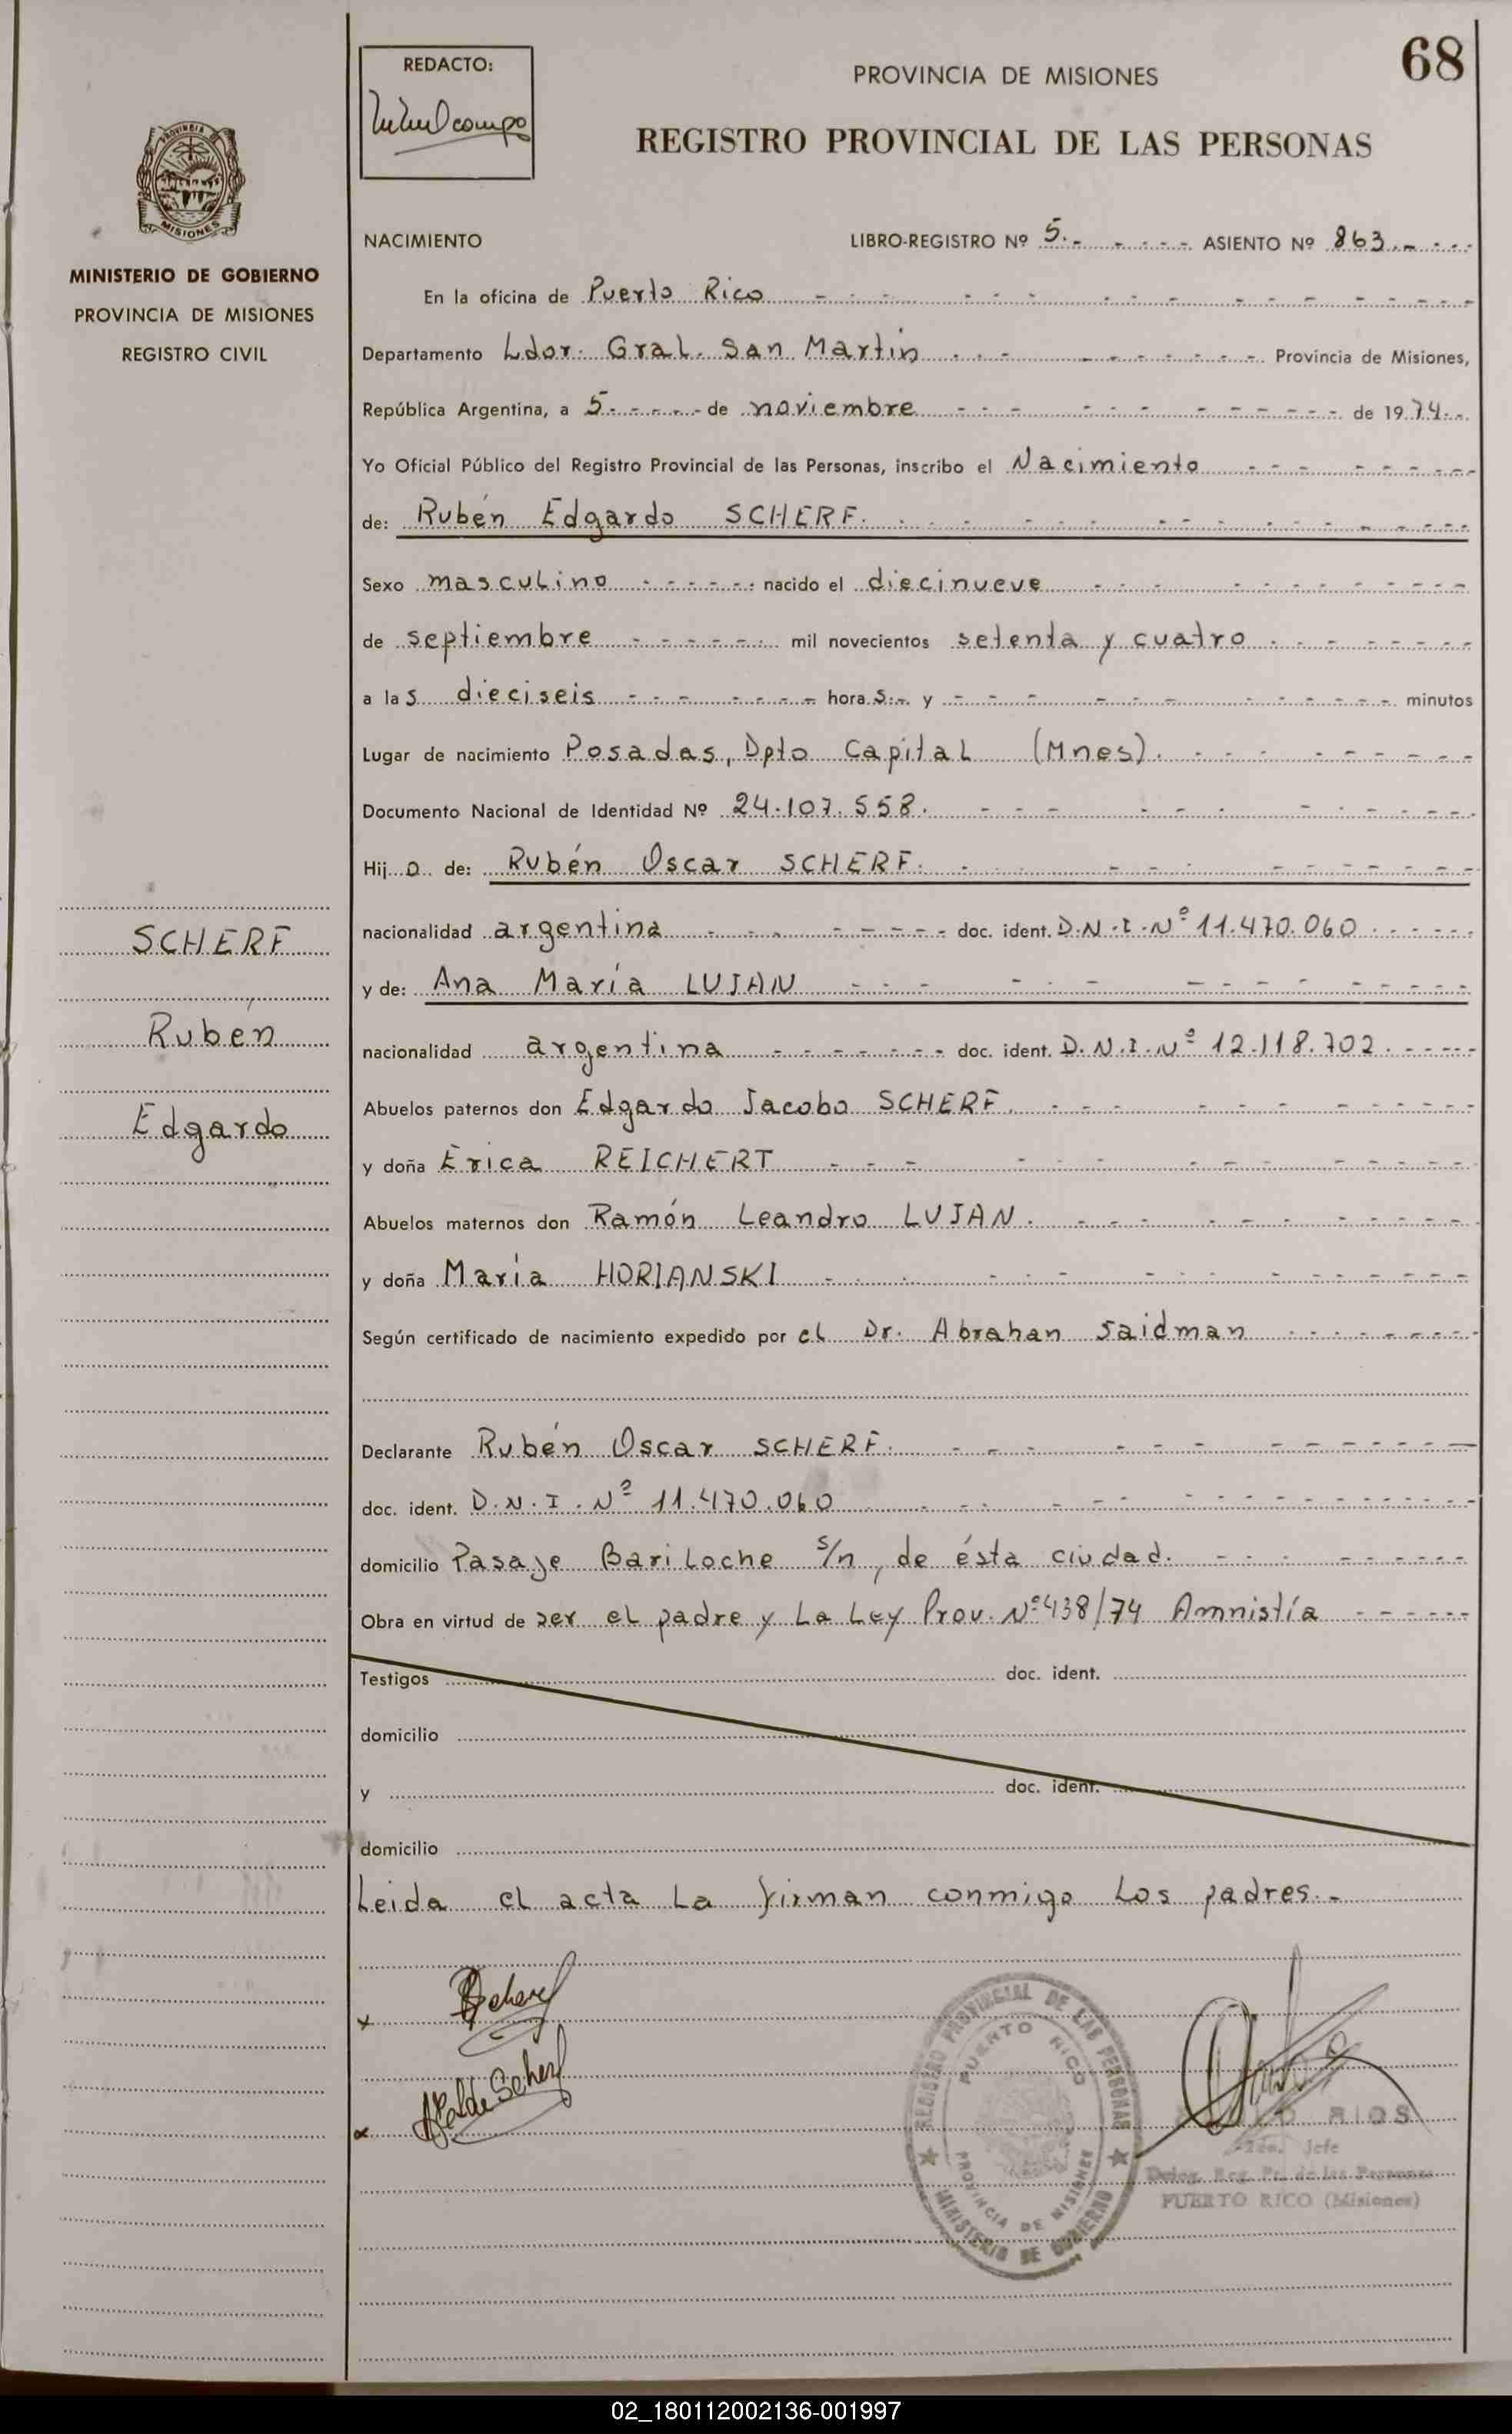 68
REDACTO:
PROVINCIA DE MISIONES
REGISTRO PROVINCIAL DE LAS PERSONAS
MISIONES
MINISTERIO DE GOBIERNO
PROVINCIA DE MISIONES
REGISTRO CIVIL
NACIMIENTO LIBRO-REGISTRO Nº 5.- ASIENTO Nº 863.-
En la oficina de Puerto Rico
Departamento Ldor. Gral. San Martin Provincia de Misiones,
República Argentina, a 5 de noviembre de 1974.-
Yo Oficial Público del Registro Provincial de las Personas, inscribo el Nacimiento
de: Rubén Edgardo SCHERF.
Sexo masculino nacido el diecinueve
de septiembre mil novecientos setenta y cuatro
a las dieciseis horas.- y minutos
Lugar de nacimiento Posadas, Dpto Capital (Mnes).
Documento Nacional de Identidad Nº 24.107.558.
Hijo de: Rubén Oscar SCHERF.
nacionalidad argentina doc. ident. D.N.I.Nº 11.470.060
y de: Ana María LUJAN
nacionalidad argentina doc. ident. D.N.I.Nº 12.118.702.
Abuelos paternos don Edgardo Jacobo SCHERF.
y doña Erica REICHERT
Abuelos maternos don Ramón Leandro LUJAN.
y doña María HORIANSKI
Según certificado de nacimiento expedido por el Dr. Abrahan Saidman
Declarante Rubén Oscar SCHERF.
doc. ident. D.N.I.Nº 11.470.060
domicilio Pasaje Bariloche s/n, de ésta ciudad.
Obra en virtud de ser el padre y La Ley Prov. Nº 438/74 Amnistía
Testigos doc. ident.
domicilio
y doc. ident.
domicilio
Leida el acta La firman conmigo Los padres.-
SCHERF
Rubén
Edgardo
REGISTRO PROVINCIAL DE LAS PERSONAS
PUERTO RICO
PROVINCIA DE MISIONES
MINISTERIO DE GOBIERNO
RIOS
Jefe
Deleg. Reg. Pr. de las Personas
PUERTO RICO (Misiones)
02_180112002136-001997